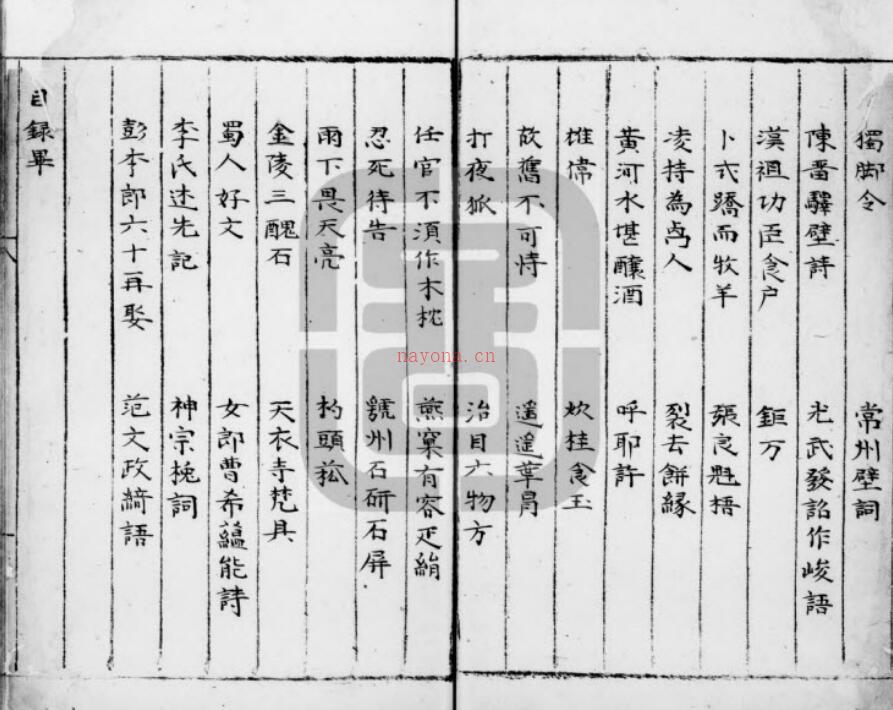 獨脚令 常州壁詞
陳畱驛壁詩 光武發詔作峻語
漢祖功臣食户 鉅万
卜式蹻而牧羊 張良魁梧
凌持為卤人 裂去餅緣
黄河水堪釀酒 呼耶許
雄偉 炊桂食玉
故舊不可恃 遥遥華胄
打夜狐 治目六物方
任官不須作木枕 燕窠有容疋絹
忍死待告 虢州石研石屏
雨下畏天亮 杓頭菘
金陵三醜石 天衣寺梵具
蜀人好文 女郎曹希蘊能詩
李氏述先記 神宗挽詞
彭李郎六十再娶 范文政綺語
目録畢
nayona.cn